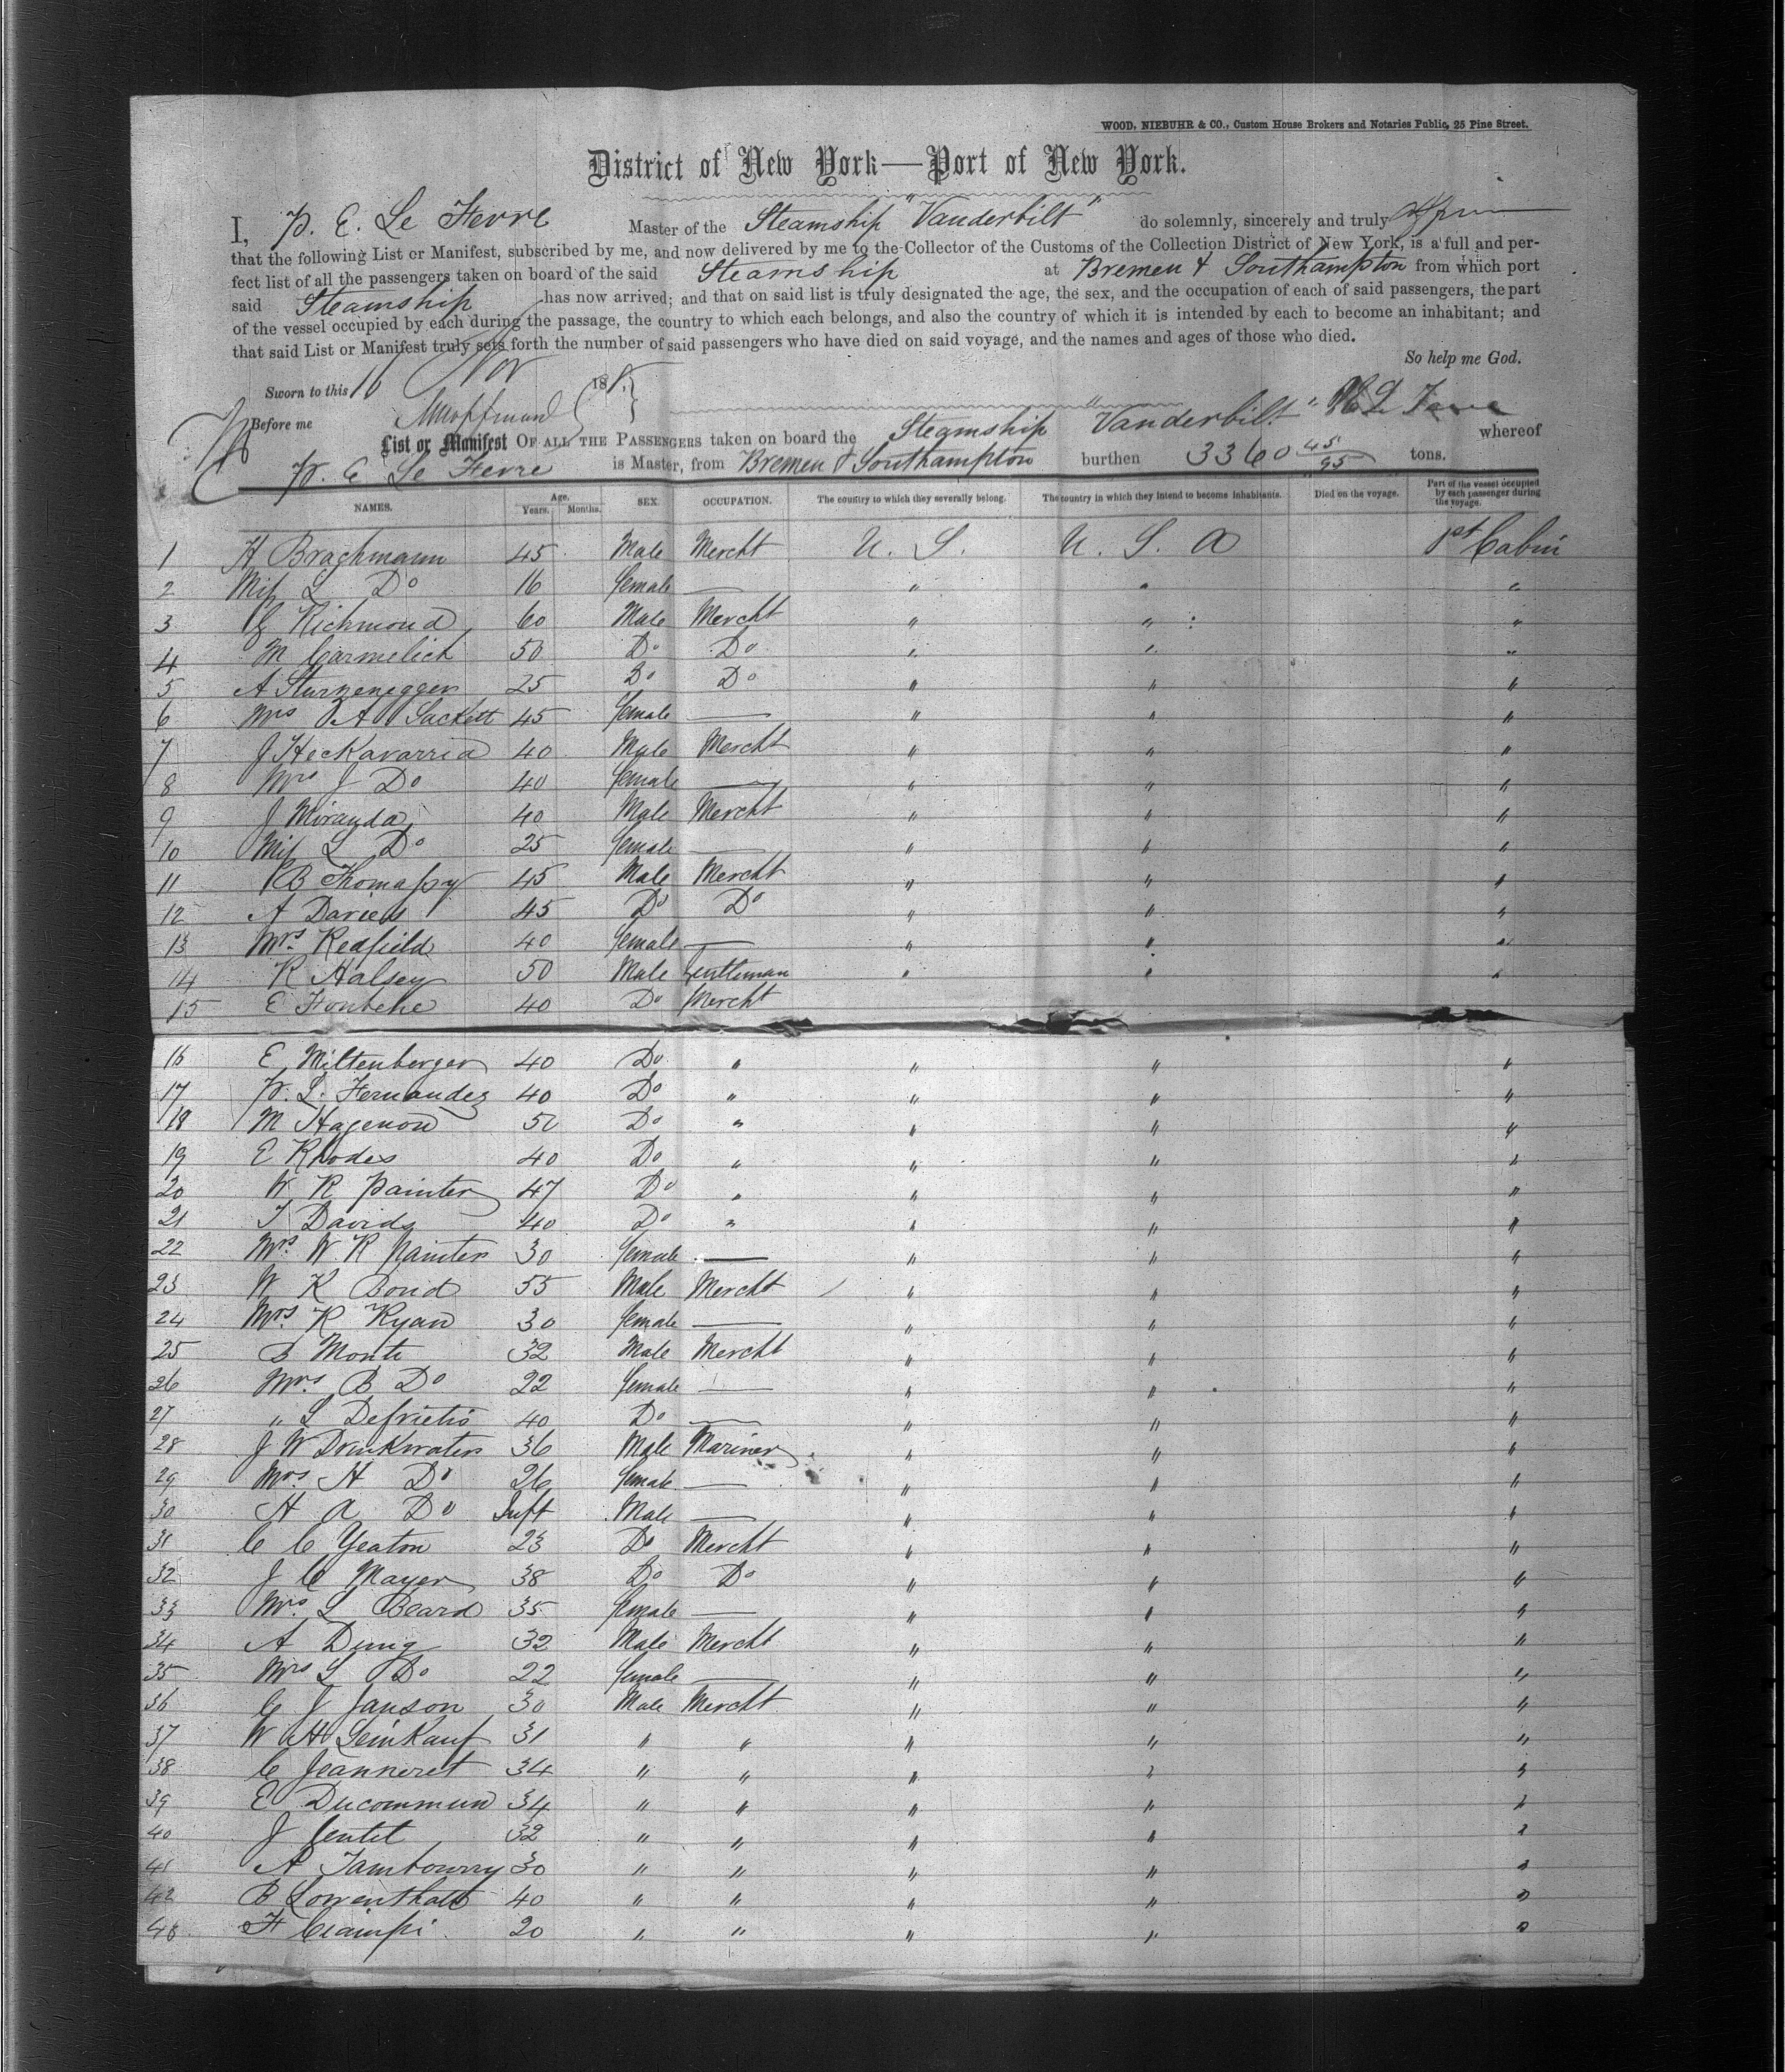 WOOD, NIEBUHR & CO., Custom House Brokers and Notaries Public, 25 Pine Street.
District of New York—Port of New York.
I, P. E. Le Fevre Master of the Steamship "Vanderbilt" do solemnly, sincerely and truly
that the following List or Manifest, subscribed by me, and now delivered by me to the Collector of the Customs of the Collection District of New York, is a full and per-
fect list of all the passengers taken on board of the said Steamship at Bremen & Southampton from which port
said Steamship has now arrived; and that on said list is truly designated the age, the sex, and the occupation of each of said passengers, the part
of the vessel occupied by each during the passage, the country to which each belongs, and also the country of which it is intended by each to become an inhabitant; and
that said List or Manifest truly sets forth the number of said passengers who have died on said voyage, and the names and ages of those who died.
So help me God.
Sworn to this 10 Nov 18
Before me
List or Manifest OF ALL THE PASSENGERS taken on board the Steamship "Vanderbilt" whereof
P. E. Le Fevre is Master, from Bremen & Southampton burthen 3360 45/95 tons.
NAMES. Age. Years. Months. SEX. OCCUPATION. The country to which they severally belong. The country in which they intend to become inhabitants. Died on the voyage. Part of the vessel occupied by each passenger during the voyage.
1 H Brachmann 45 Male Mercht U. S. U. S. A 1st Cabin
2 Miss L Do 16 female — " " "
3 G Richmond 60 Male Mercht " " "
4 M Carmelich 50 Do Do " " "
5 A Sturzenegger 25 Do Do " " "
6 Mrs A Sackett 45 female — " " "
7 J Heckavarria 40 Male Mercht " " "
8 Mrs J Do 40 female — " " "
9 J Miranda 40 Male Mercht " " "
10 Miss L Do 25 female — " " "
11 B Thomassy 45 Male Mercht " " "
12 A Davids 45 Do Do " " "
13 Mrs. Redfield 40 female — " " "
14 R Halsey 50 Male Gentleman " " "
15 E 40 Do Mercht
16 E Miltenberger 40 Do " " " "
17 P. L. Fernandez 40 Do " " " "
18 M Hagenow 50 Do " " " "
19 E Rhodes 40 Do " " " "
20 W R Painter 47 Do " " " "
21 T Davids 40 Do " " " "
22 Mrs W R Painter 30 female — " " "
23 W K Bond 55 Male Mercht " " "
24 Mrs. R Ryan 30 female — " " "
25 B Monti 32 Male Mercht " " "
26 Mrs. B Do 22 female — " " "
27 " L Defrietis 40 Do — " " "
28 J W Drinkwater 36 Male Mariner " " "
29 Mrs. H Do 26 female — " " "
30 H A Do Inft Male — " " "
31 C C Yeaton 23 Do Mercht " " "
32 J C Mayer 38 Do Do " " "
33 Mrs. L Beard 35 female — " " "
34 A Dung 32 Male Mercht " " "
35 Mrs L Do 22 female — " " "
36 C J Janson 30 Male Mercht " " "
37 W H Leinkauf 31 " " " " "
38 C Jeanneret 34 " " " " "
39 E Ducommun 34 " " " " "
40 J Centet 32 " " " " "
41 A Tamboury 30 " " " " "
42 B Lowenthal 40 " " " " "
43 F Ciampi 20 " " " " "